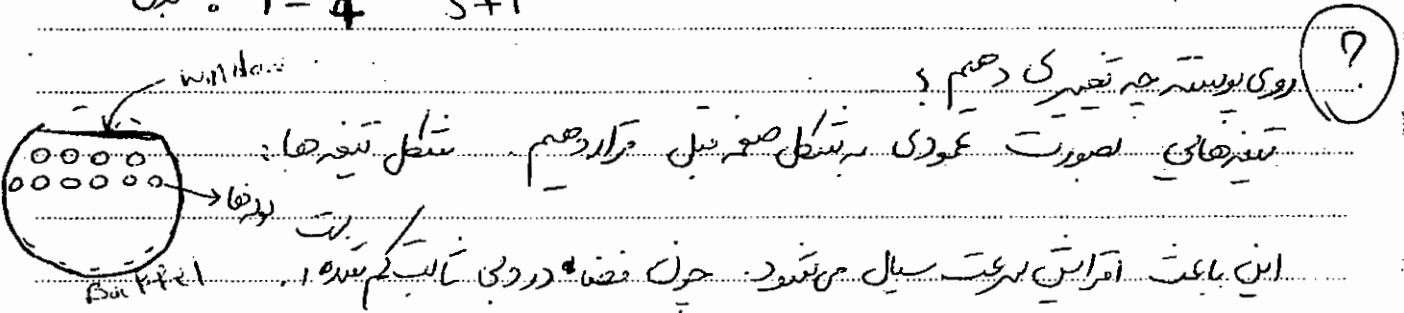 1 - 4 5+1
window
? روی پوسته چه تغییری دهیم؟
تیغه‌هایی بصورت عمودی به شکل صفحه قبل قرار دهیم. شکل تیغه‌ها:
لوله‌ها
این باعث افزایش سرعت سیال می‌شود. چون فضا در دبی ثابت کم شده